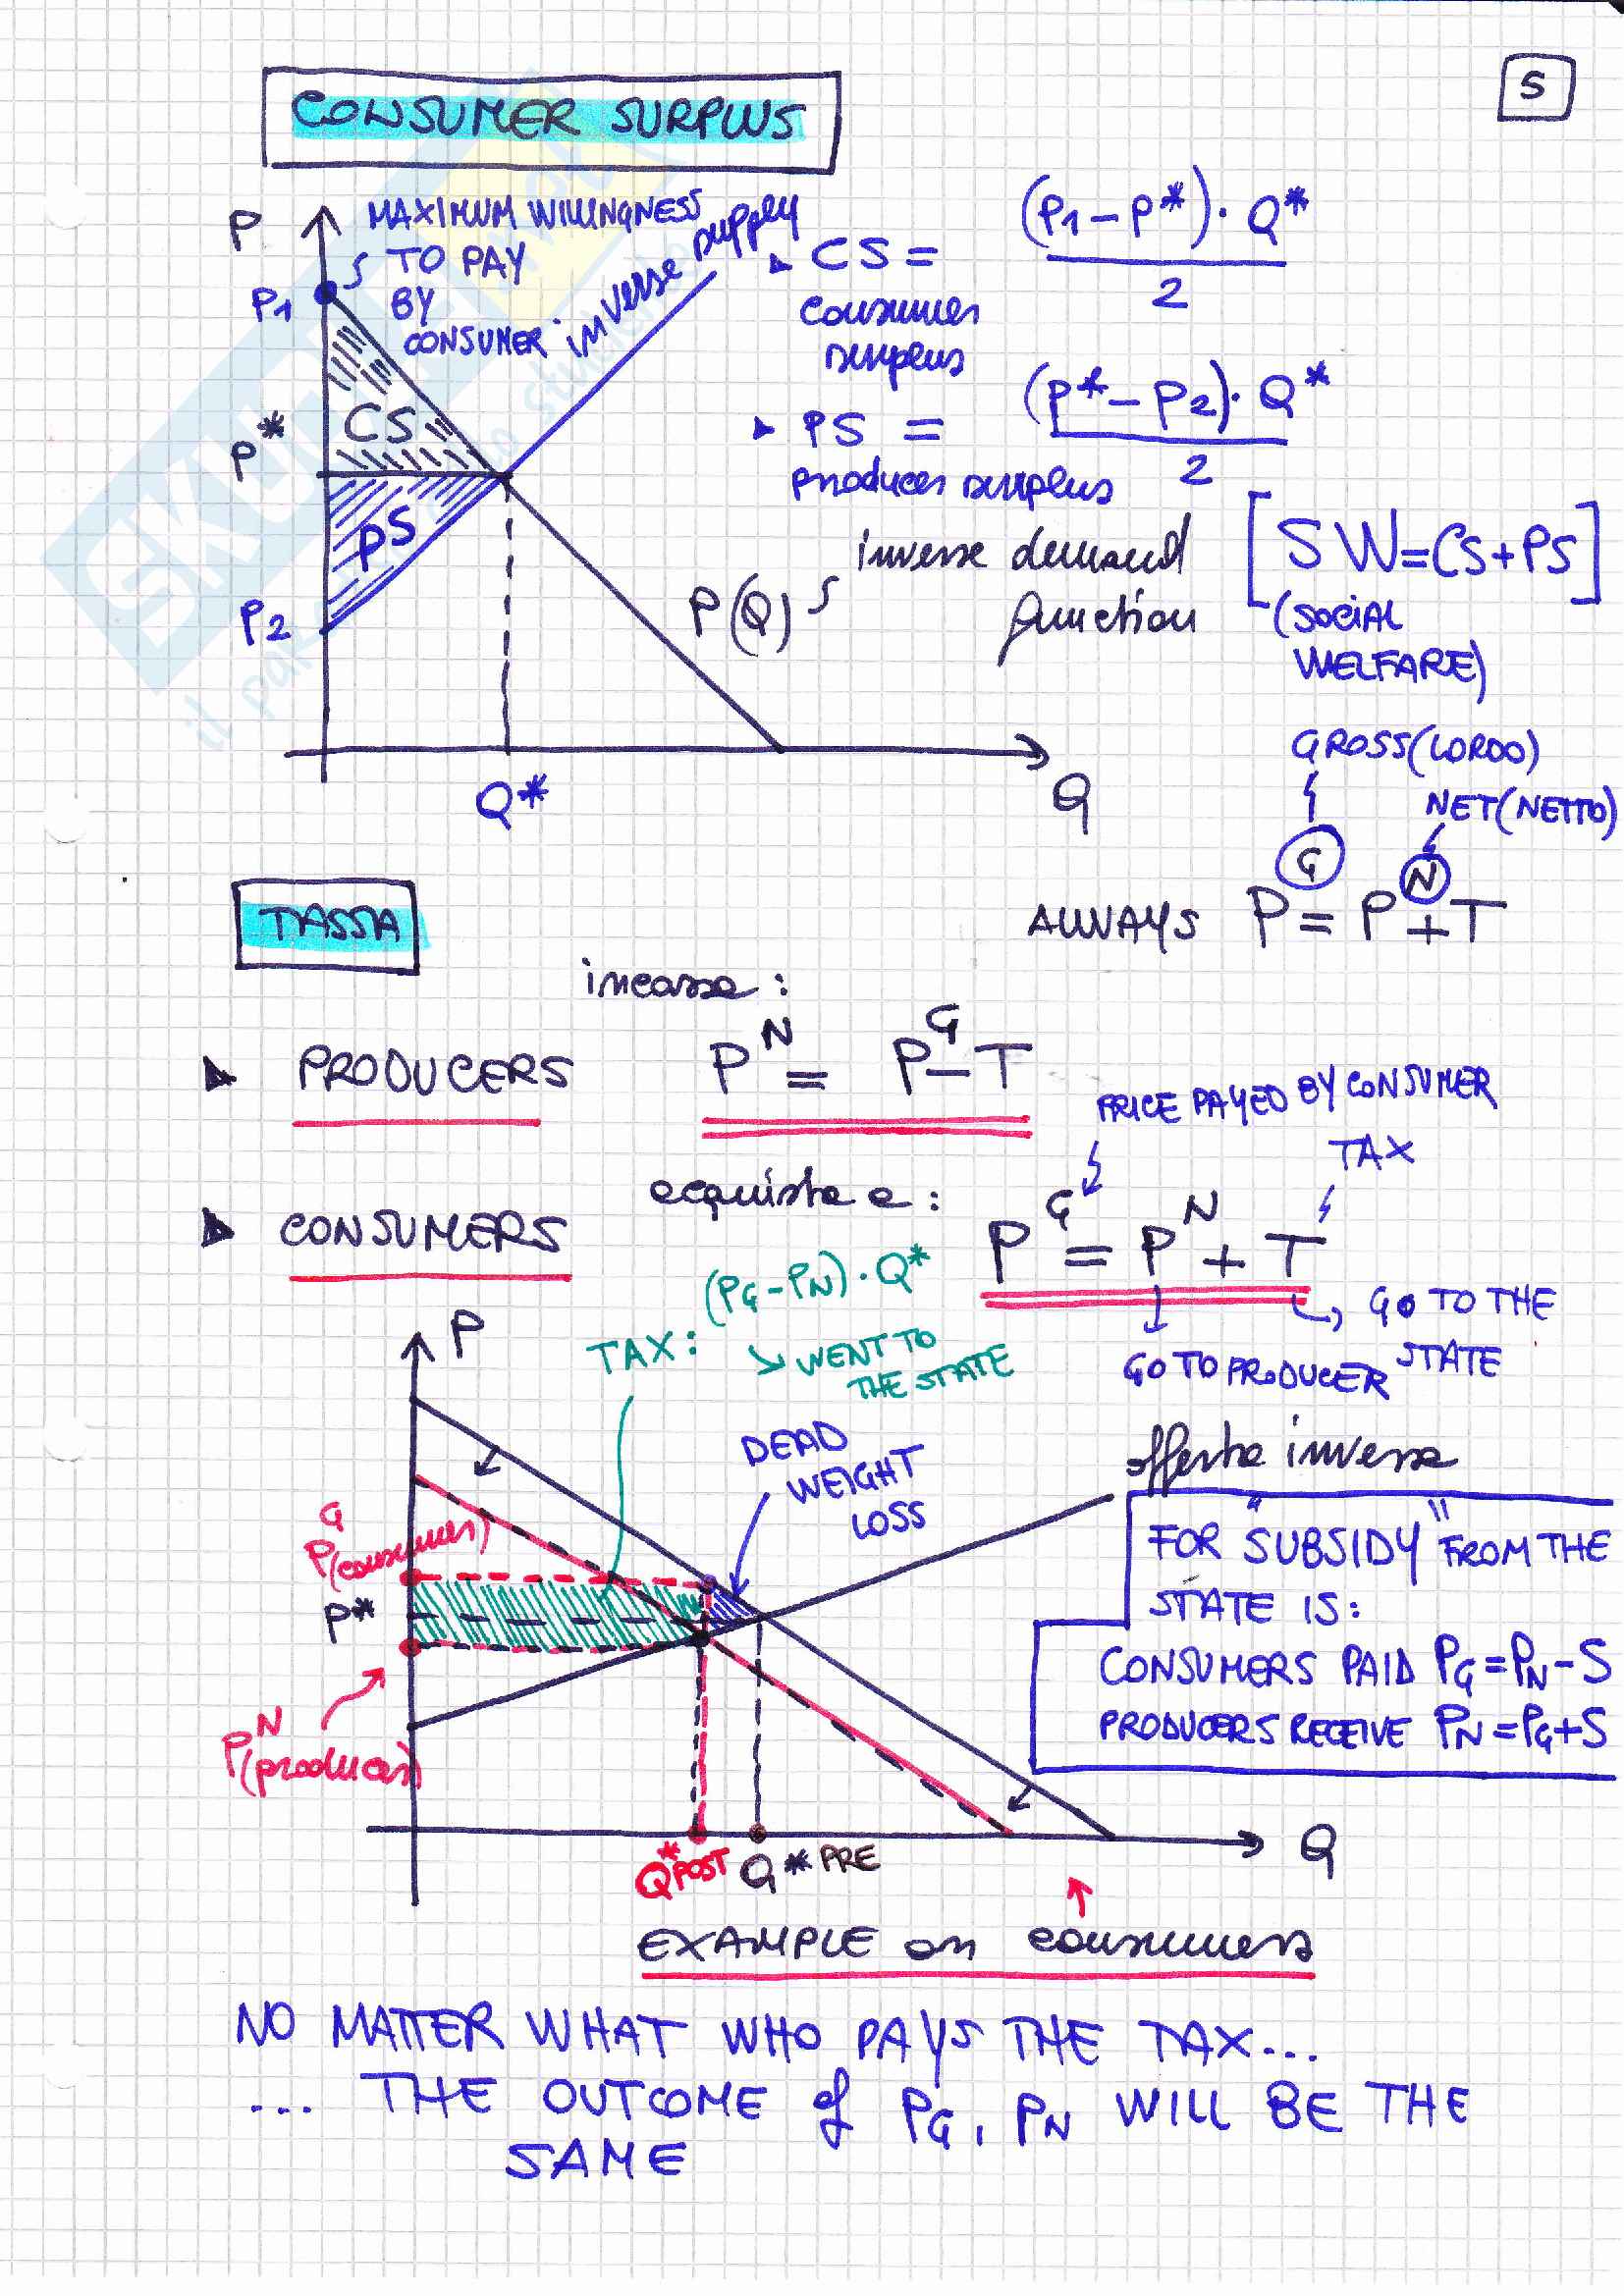 5
CONSUMER SURPLUS
P
MAXIMUM WILLINGNESS
TO PAY
BY
CONSUMER
inverse supply
P1
P*
CS
PS
P2
Q*
Q
P(Q)
inverse demand
function
CS = (P1-P*)·Q*
2
consumer
surplus
PS = (P*-P2)·Q*
2
producer surplus
[SW=CS+PS]
(SOCIAL
WELFARE)
GROSS(LORDO)
NET(NETTO)
TASSA
ALWAYS P^G = P^N + T
incassa:
PRODUCERS P^N = P^G - T
PRICE PAYED BY CONSUMER
TAX
acquista a:
CONSUMERS P^G = P^N + T
GO TO THE
STATE
GO TO PRODUCER
(PG-PN)·Q*
TAX:
WENT TO
THE STATE
P
DEAD
WEIGHT
LOSS
offerta inversa
P^G (consumer)
P*
P^N (producer)
FOR "SUBSIDY" FROM THE
STATE IS:
CONSUMERS PAID PG=PN-S
PRODUCERS RECEIVE PN=PG+S
Q*POST
Q* PRE
Q
EXAMPLE on consumers
NO MATTER WHAT WHO PAYS THE TAX...
... THE OUTCOME of PG, PN WILL BE THE
SAME